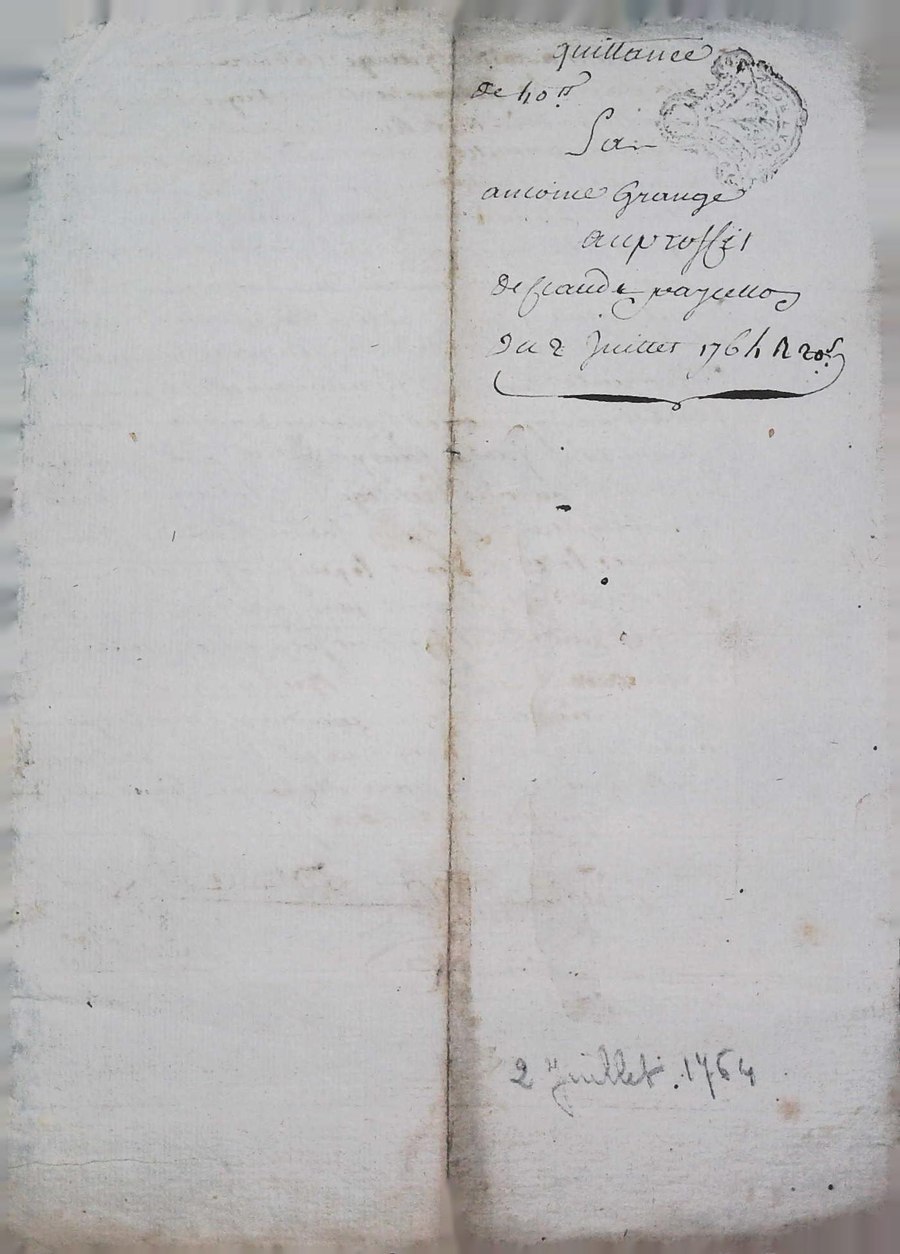 quittance
de 40 ₶
Par
antoine Grange
au proffit
de Claude
Du 2 Juillet 1764 R 20 s
2 Juillet 1764